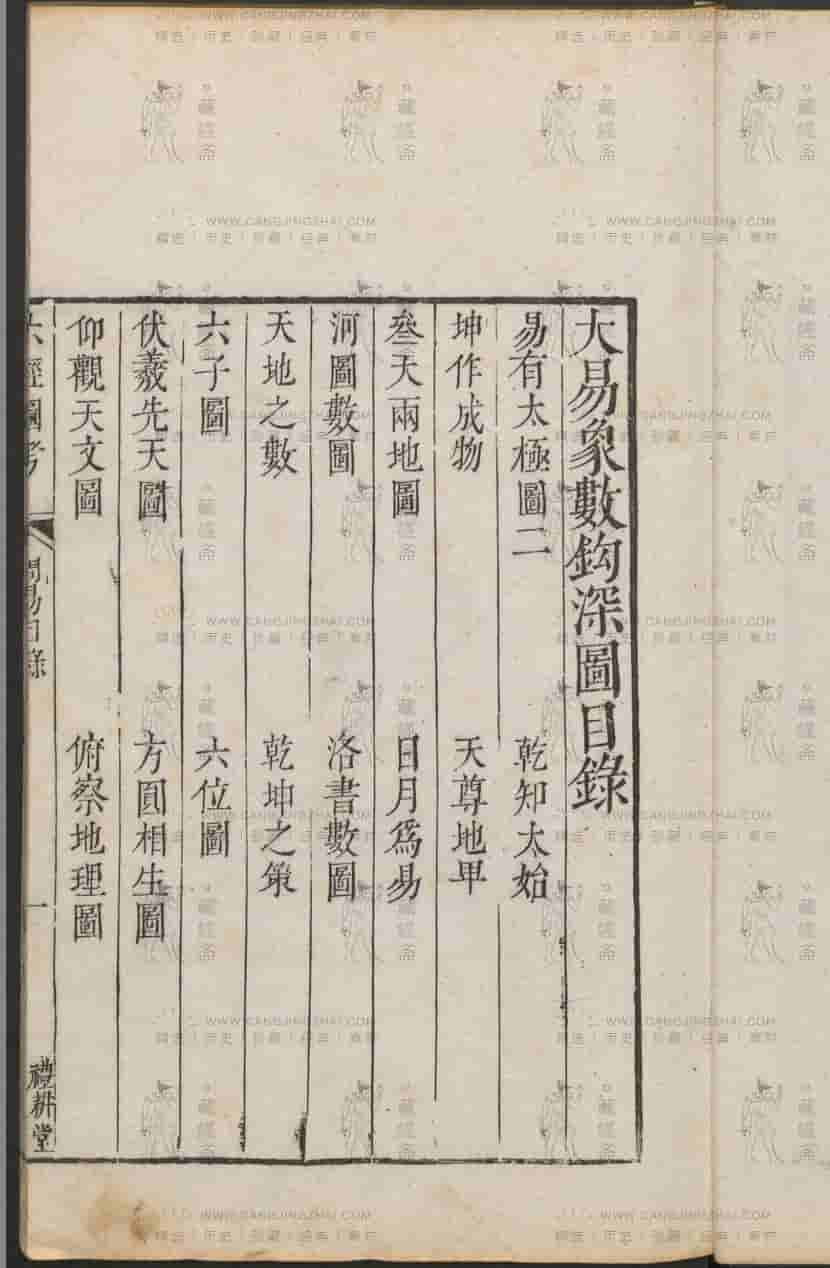 大易象數鈎深圖目錄
易有太極圖二
乾知太始
坤作成物
天尊地卑
叁天兩地圖
日月為易
河圖數圖
洛書數圖
天地之數
乾坤之策
六子圖
六位圖
伏羲先天圖
方圓相生圖
仰觀天文圖
俯察地理圖
六經圖考
周易目錄
一
禮耕堂
WWW.CANGJINGZHAI.COM
藏經斋